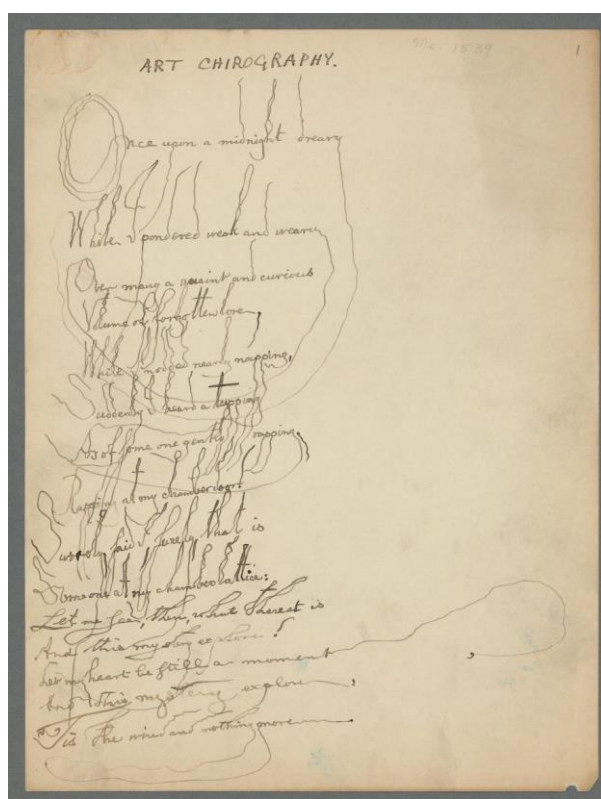 1
ART CHIROGRAPHY.
Once upon a midnight dreary
While I pondered weak and weary
Over many a quaint and curious
Volume of forgotten lore,
While I nodded nearly napping,
Suddenly I heard a tapping
As of some one gently rapping.
Rapping at my chamber door.
Surely said I surely that is
Someone at my chamber lattice:
Let me see, then, what thereat is
And this mystery explore!
Let my heart be still a moment
And this mystery explore,
Tis the wind and nothing more.